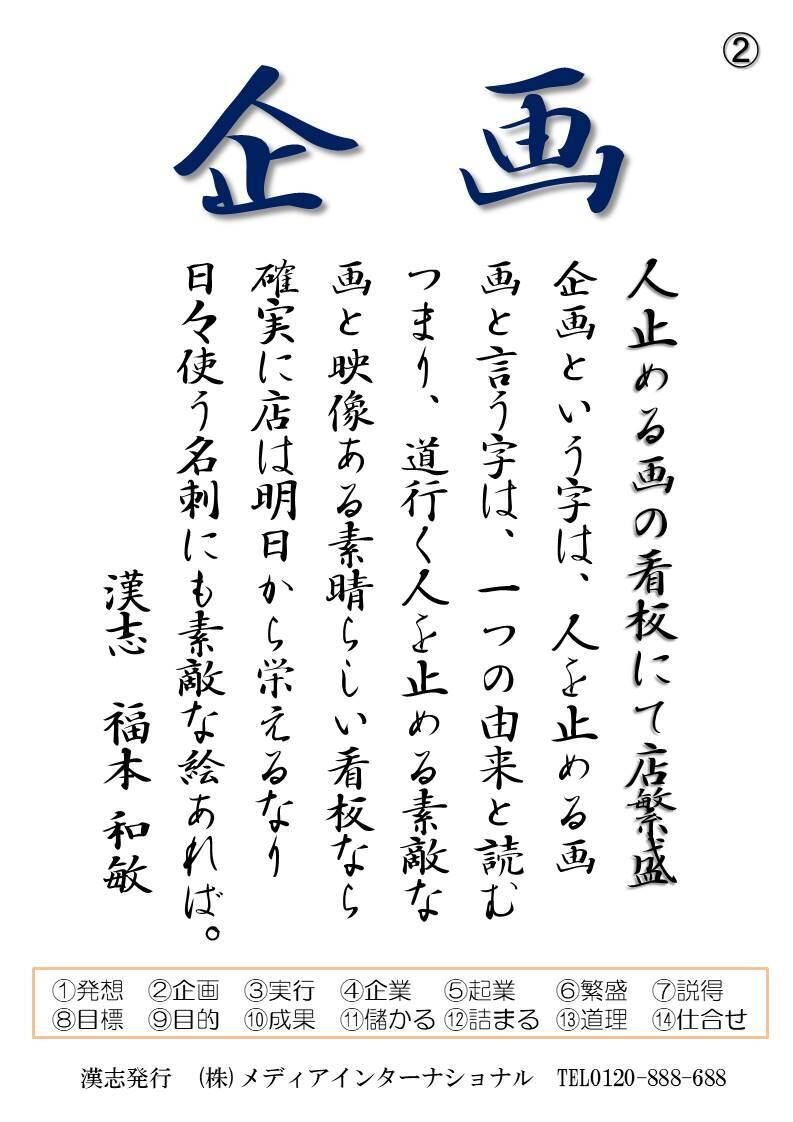 ②
企画
人止める画の看板にて店繁盛
企画という字は、人を止める画
画と言う字は、一つの由来と読む
つまり、道行く人を止める素敵な
画と映像ある素晴らしい看板なら
確実に店は明日から栄えるなり
日々使う名刺にも素敵な絵あれば。
漢志　福本 和敏
①発想　②企画　③実行　④企業　⑤起業　⑥繁盛　⑦説得
⑧目標　⑨目的　⑩成果　⑪儲かる　⑫詰まる　⑬道理　⑭仕合せ
漢志発行　(株)メディアインターナショナル　TEL0120-888-688